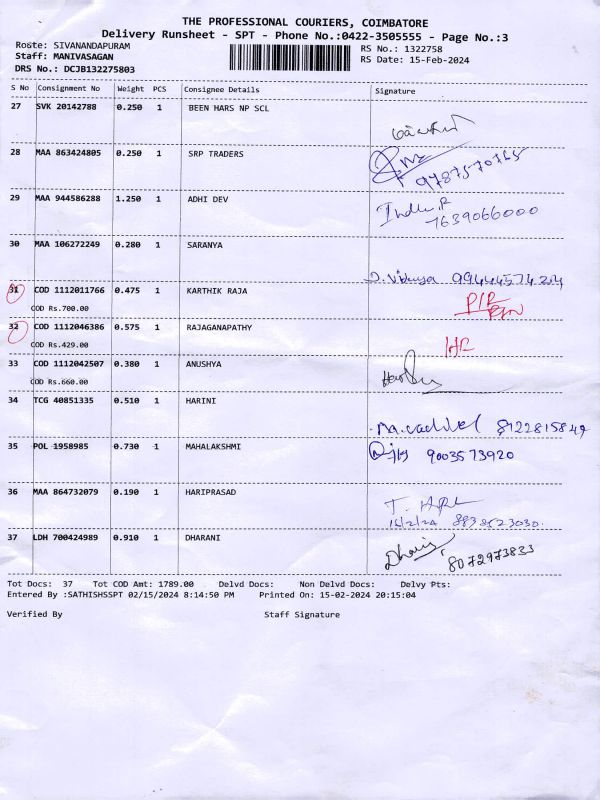 THE PROFESSIONAL COURIERS, COIMBATORE
Delivery Runsheet - SPT - Phone No.:0422-3505555 - Page No.:3
Route: SIVANANDAPURAM
RS No.: 1322758
Staff: MANIVASAGAN
RS Date: 15-Feb-2024
DRS No.: DCJB132275803
S No Consignment No Weight PCS Consignee Details Signature
27 SVK 20142788 0.250 1 BEEN HARS NP SCL
28 MAA 863424805 0.250 1 SRP TRADERS
9787570765
29 MAA 944586288 1.250 1 ADHI DEV
Indhu.R
7639066000
30 MAA 106272249 0.280 1 SARANYA
31 COD 1112011766 0.475 1 KARTHIK RAJA
COD Rs.700.00
32 COD 1112046386 0.575 1 RAJAGANAPATHY
COD Rs.429.00
33 COD 1112042507 0.380 1 ANUSHYA
COD Rs.660.00
34 TCG 40851335 0.510 1 HARINI
8122815849
35 POL 1958985 0.730 1 MAHALAKSHMI
9003573920
36 MAA 864732079 0.190 1 HARIPRASAD
16/2/24 8838523030
37 LDH 700424989 0.910 1 DHARANI
Dharani
8072973833
Tot Docs: 37 Tot COD Amt: 1789.00 Delvd Docs: Non Delvd Docs: Delvy Pts:
Entered By :SATHISHSSPT 02/15/2024 8:14:50 PM Printed On: 15-02-2024 20:15:04
Verified By Staff Signature